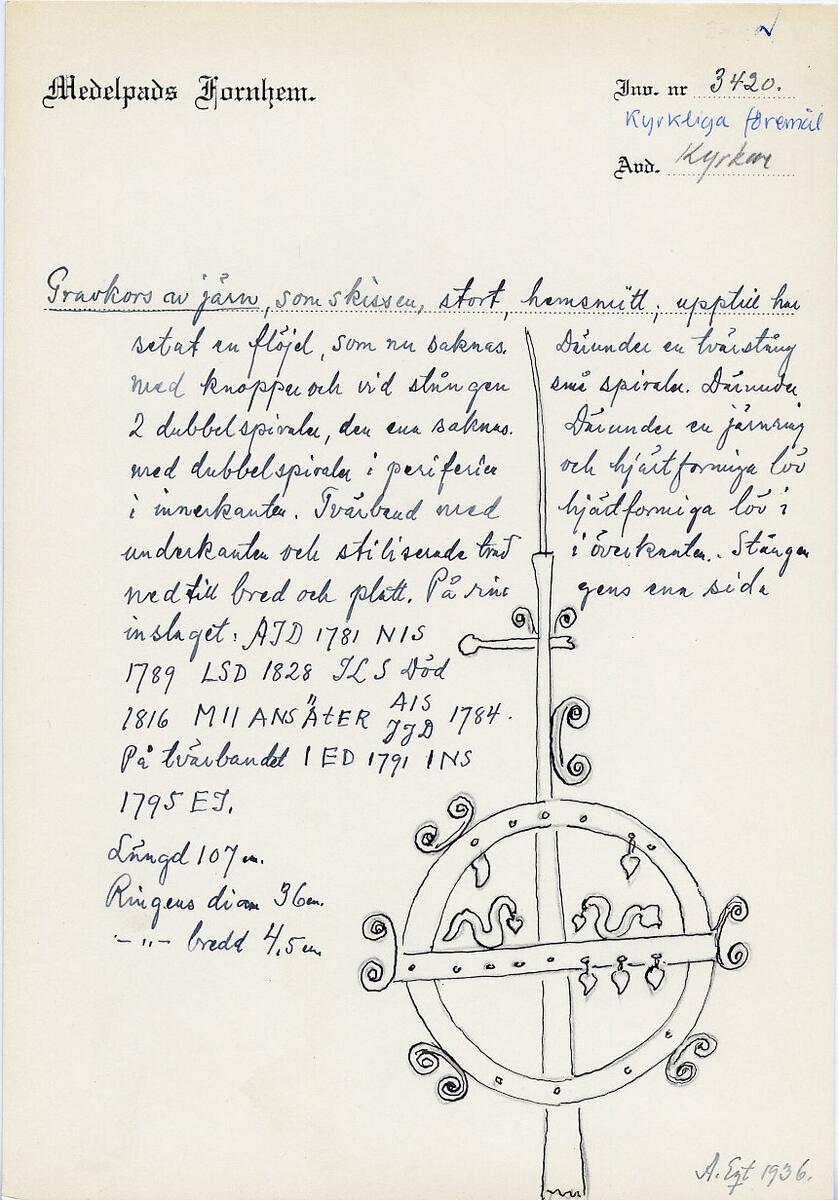 Medelpads Fornhem.
Inv. nr 3420.
Kyrkliga föremål
Avd. Kyrkan
Gravkors av järn, som skissen, stort, hemsmitt, upptill har
setat en flöjel, som nu saknas. Därunder en tvärstång
med knoppar och vid stången små spiraler. Därunder
2 dubbelspiraler, den ena saknas. Därunder en järnring
med dubbelspiraler i periferien och hjärtformiga löv
i innerkanten. Tvärband med hjärtformiga löv i
underkanten och stiliserade träd i överkanten. Stången
nedtill bred och platt. På rin gens ena sida
inslaget: AJD 1781 NIS
1789 LSD 1828 JLS Död
1816 MII ANSÄTER AIS JJD 1784.
På tvärbandet IED 1791 INS
1795 EJ.
Längd 107 cm.
Ringens diam 36 cm.
–"– bredd 4,5 cm
1936.